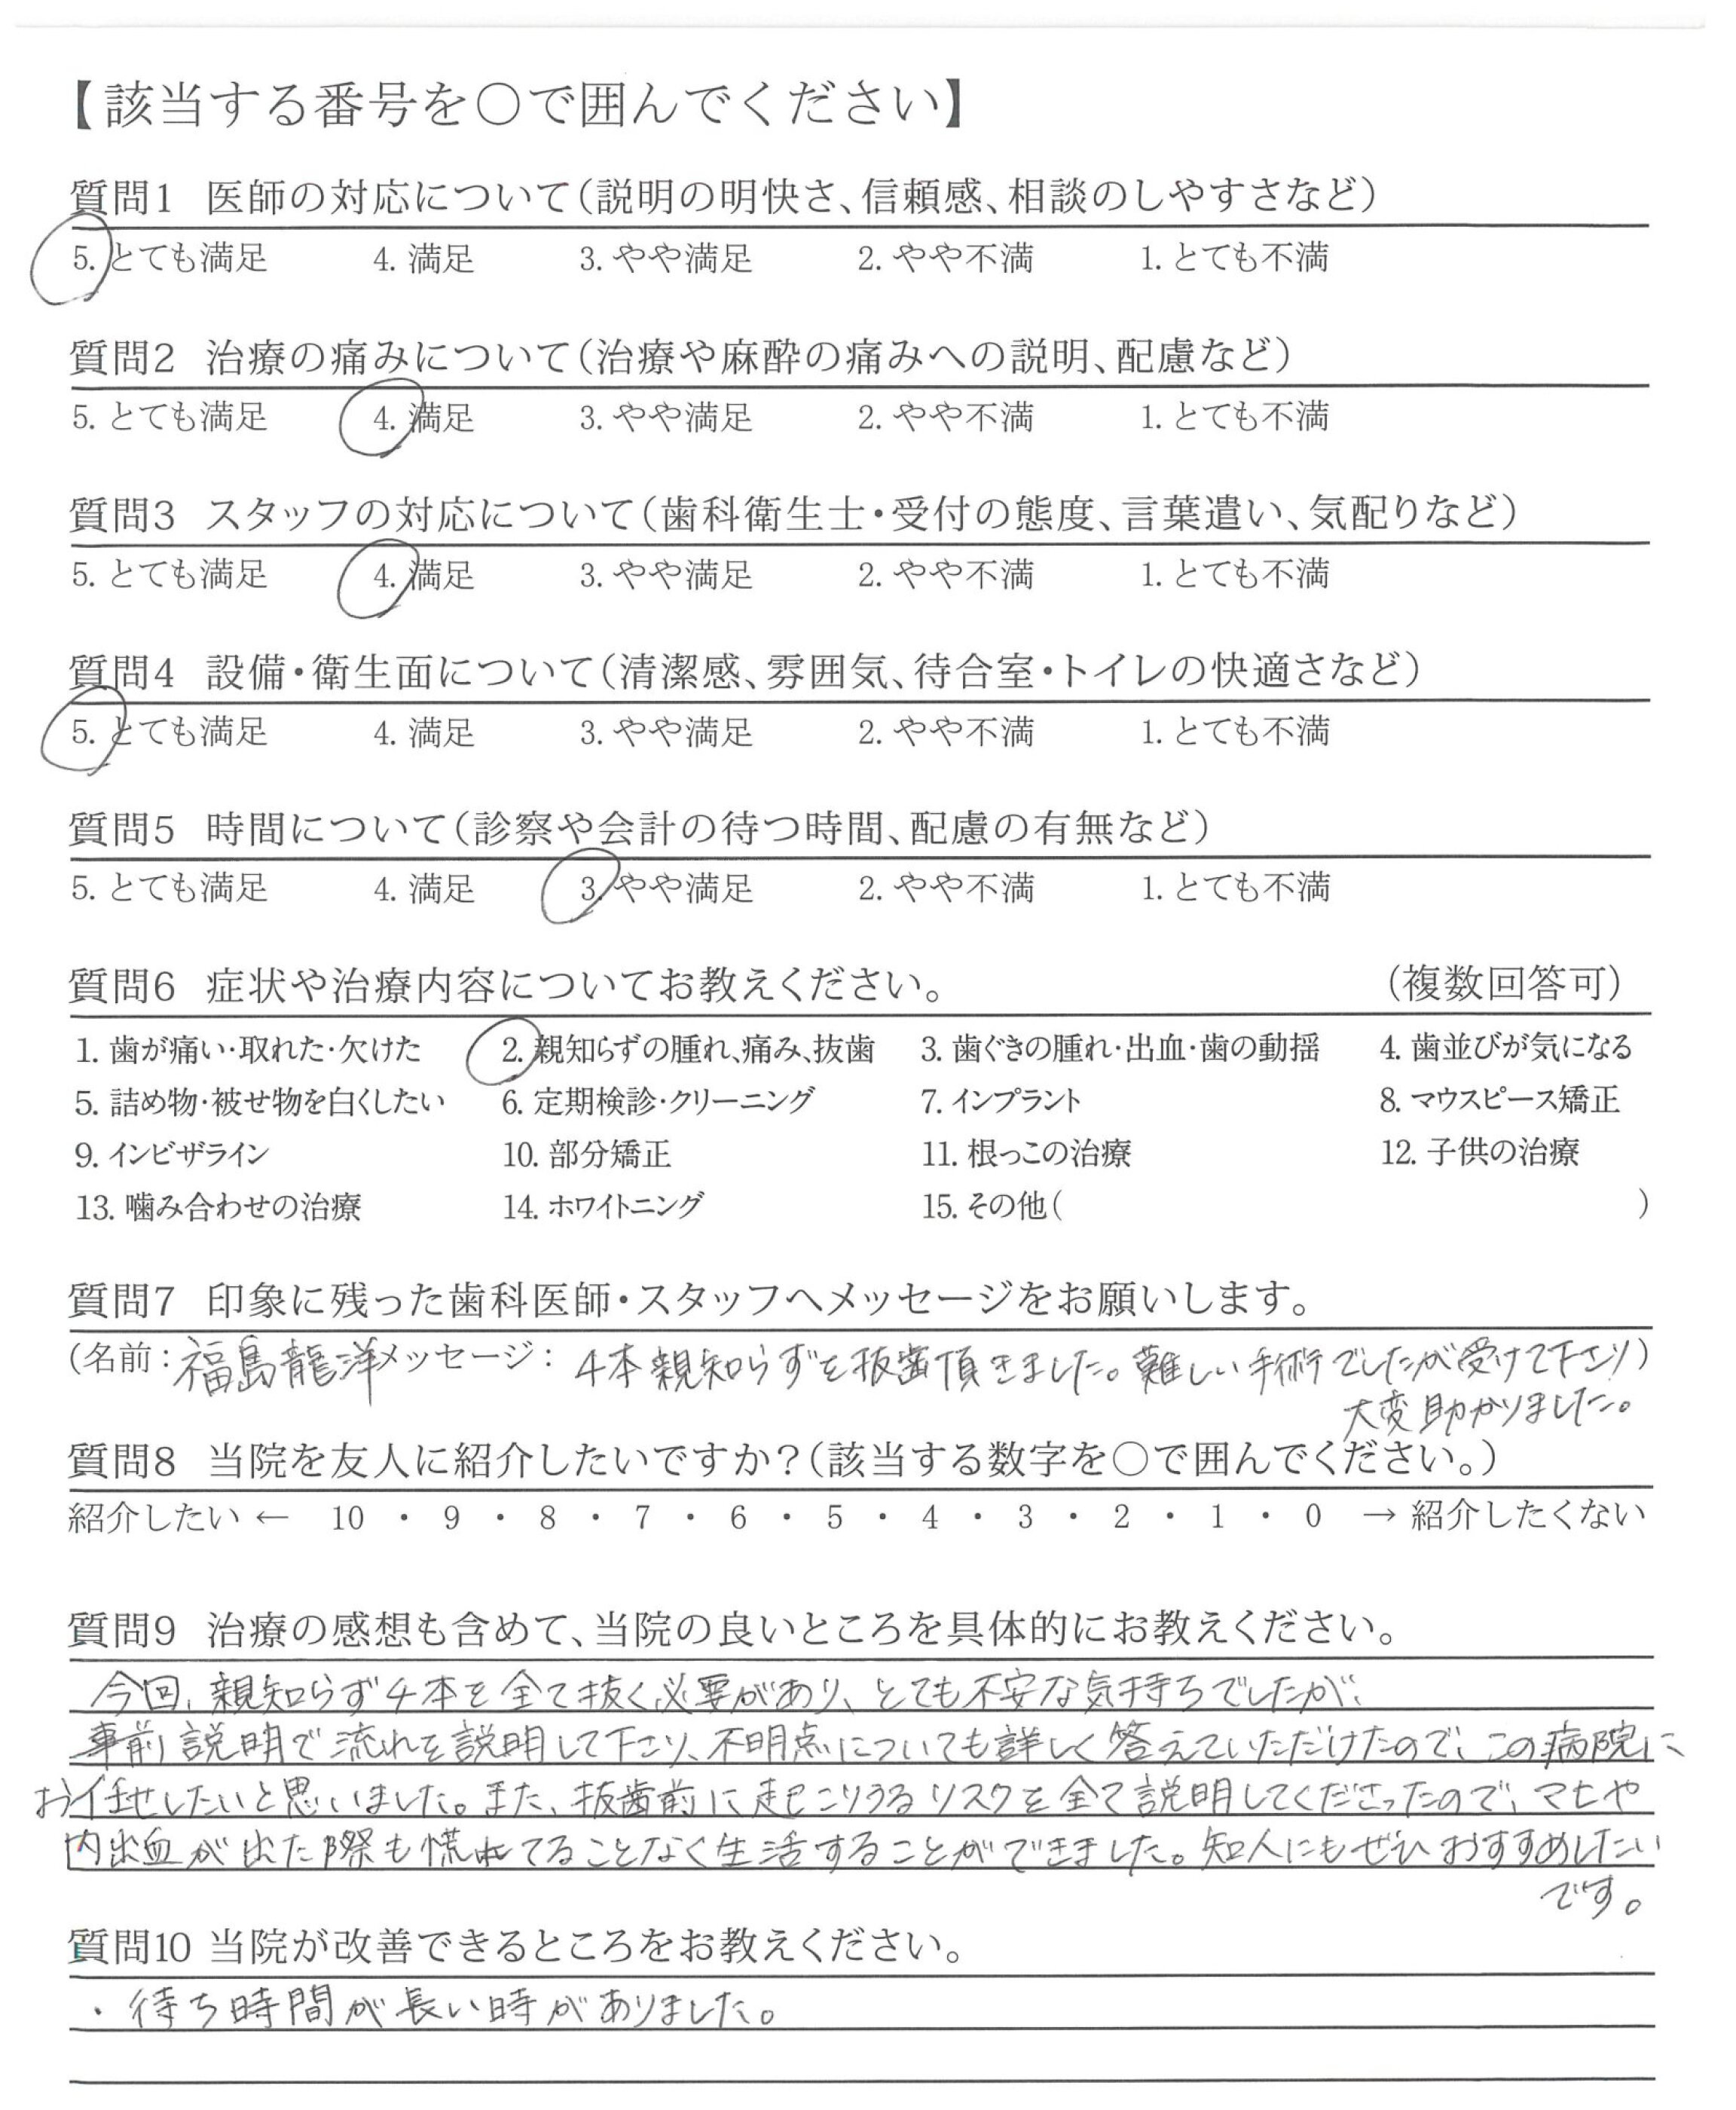 【該当する番号を○で囲んでください】
質問1 医師の対応について(説明の明快さ、信頼感、相談のしやすさなど)
5. とても満足 4. 満足 3. やや満足 2. やや不満 1. とても不満
質問2 治療の痛みについて(治療や麻酔の痛みへの説明、配慮など)
5. とても満足 4. 満足 3. やや満足 2. やや不満 1. とても不満
質問3 スタッフの対応について(歯科衛生士・受付の態度、言葉遣い、気配りなど)
5. とても満足 4. 満足 3. やや満足 2. やや不満 1. とても不満
質問4 設備・衛生面について(清潔感、雰囲気、待合室・トイレの快適さなど)
5. とても満足 4. 満足 3. やや満足 2. やや不満 1. とても不満
質問5 時間について(診察や会計の待つ時間、配慮の有無など)
5. とても満足 4. 満足 3. やや満足 2. やや不満 1. とても不満
質問6 症状や治療内容についてお教えください。 (複数回答可)
1. 歯が痛い・取れた・欠けた 2. 親知らずの腫れ、痛み、抜歯 3. 歯ぐきの腫れ・出血・歯の動揺 4. 歯並びが気になる
5. 詰め物・被せ物を白くしたい 6. 定期検診・クリーニング 7. インプラント 8. マウスピース矯正
9. インビザライン 10. 部分矯正 11. 根っこの治療 12. 子供の治療
13. 噛み合わせの治療 14. ホワイトニング 15. その他( )
質問7 印象に残った歯科医師・スタッフへメッセージをお願いします。
(名前:福島龍洋メッセージ: 4本親知らずを抜歯頂きました。難しい手術でしたが受けて下さり)
大変助かりました。
質問8 当院を友人に紹介したいですか?(該当する数字を○で囲んでください。)
紹介したい ← 10 ・ 9 ・ 8 ・ 7 ・ 6 ・ 5 ・ 4 ・ 3 ・ 2 ・ 1 ・ 0 → 紹介したくない
質問9 治療の感想も含めて、当院の良いところを具体的にお教えください。
今回、親知らず4本を全て抜く必要があり、とても不安な気持ちでしたが、
事前説明で流れを説明して下さり、不明点についても詳しく答えていただけたので、この病院に
お任せしたいと思いました。また、抜歯前に起こりうるリスクを全て説明してくださったので、マヒや
内出血が出た際も慌れてることなく生活することができました。知人にもぜひおすすめしたい
です。
質問10 当院が改善できるところをお教えください。
・待ち時間が長い時がありました。